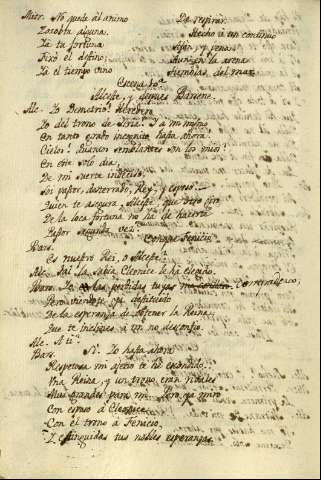 Mitr. No quede al animo
Zozobra alguna.
Ya tu fortuna
Fixó el destino;
Ya el tiempo vino
De respirar.
Hecho à un continuo
Afan, y penar
Aun en la arena
del mar.
Escena 10ª
Alceste, y despues Barsene.
Alc. Yo Demetrio! Heredero
Yo del trono de Siria! Y à mi mismo
En tanto grado incognito hasta ahora!
Cielos! Quantos semblantes son los mios!
En este solo dia,
De mi suerte indeciso,
Soi pastor, desterrado, Rey, y esposo...
Quien te asegura, Alceste, que otro giro
De la loca fortuna no ha de hacerte
Pastor segunda vez?
Bars. Conque Fenicio
Es nuestro Rei, o Alceste?
Alc. Sai la sabia Cleonice le ha elegido.
Bars. Yo las perdidas tuyas compradezco,
Pero viendote ya destituido
De la esperanza de obtener la Reina,
Que te inclines à no desconfio.
Alc. A ti?
Bars. Si. Yo hasta ahora
Respetosa mi afecto te he escondido.
Una Reina, y un trono eran rivales
Mui grandes para mi. Pero ya miro
Con esposo à Cleonice,
Con el trono à Fenicio,
Y extinguidas tus nobles esperanzas.